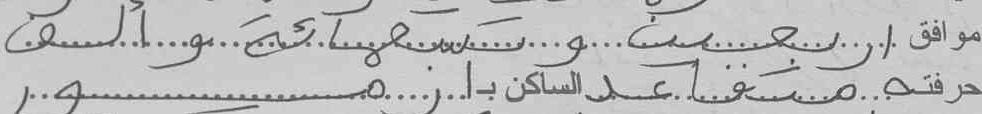 موافق اربعين و تسعمائة و ألف
حرفته متقاعد الساكن با زمور